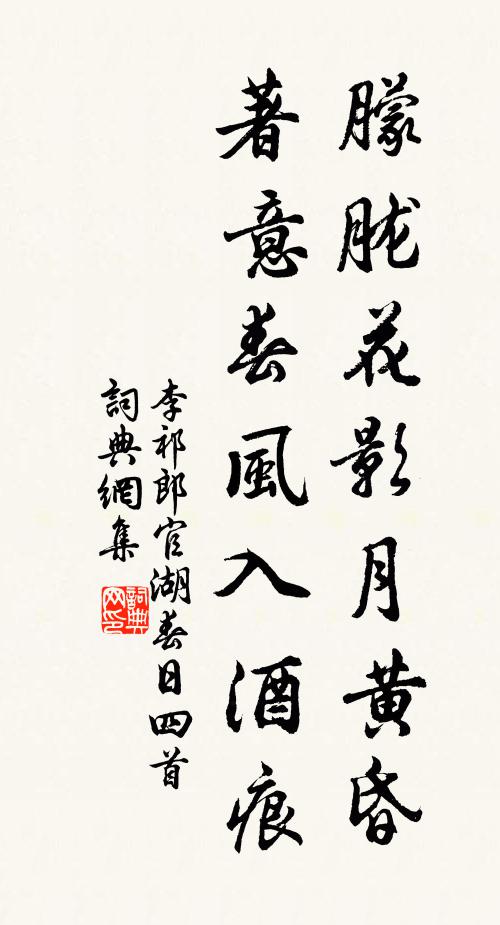 朦胧花影月黄昏
著意春風入酒痕
李祁郎官湖春日四首
詞典網集
詞典网印